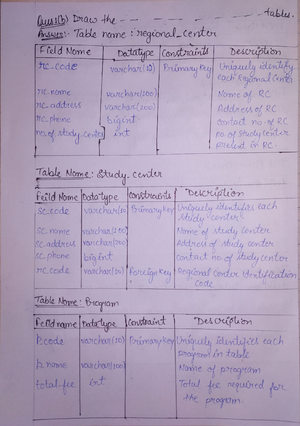 Ques1(b) Draw the tables.
Answer:- Table name : regional_center
Field Name Datatype Constraints Description
rc_code varchar(10) Primary Key Uniquely identify
each Regional Center
rc_name varchar(100) Name of RC
rc_address varchar(200) Address of RC
rc_phone bigint contact no. of RC
no_of_study_center int no. of Study center
present in RC.
Table Name: Study_center
Feild Name Datatype constraints Description
sc_code varchar(10) Primary Key Uniquely identifies each
study center
sc_name varchar(100) Name of study center
sc_address varchar(200) Address of study center
sc_phone bigint Contact no. of study center
rc_code varchar(10) Foreign Key Regional Center Identification
Code
Table Name: Program
Field name Datatype Constraint Description
P_code varchar(10) Primary Key Uniquely identifies each
program in table
P_name varchar(100) Name of program
total_fee int Total fee required for
the program.